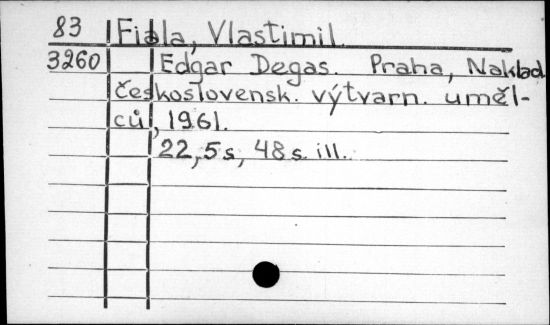 83 Fiala, Vlastimil.
3260 Edgar Degas. Praha, Naklad.
československ. výtvarn. uměl-
ců, 1961.
22,5 s, 48 s. ill.